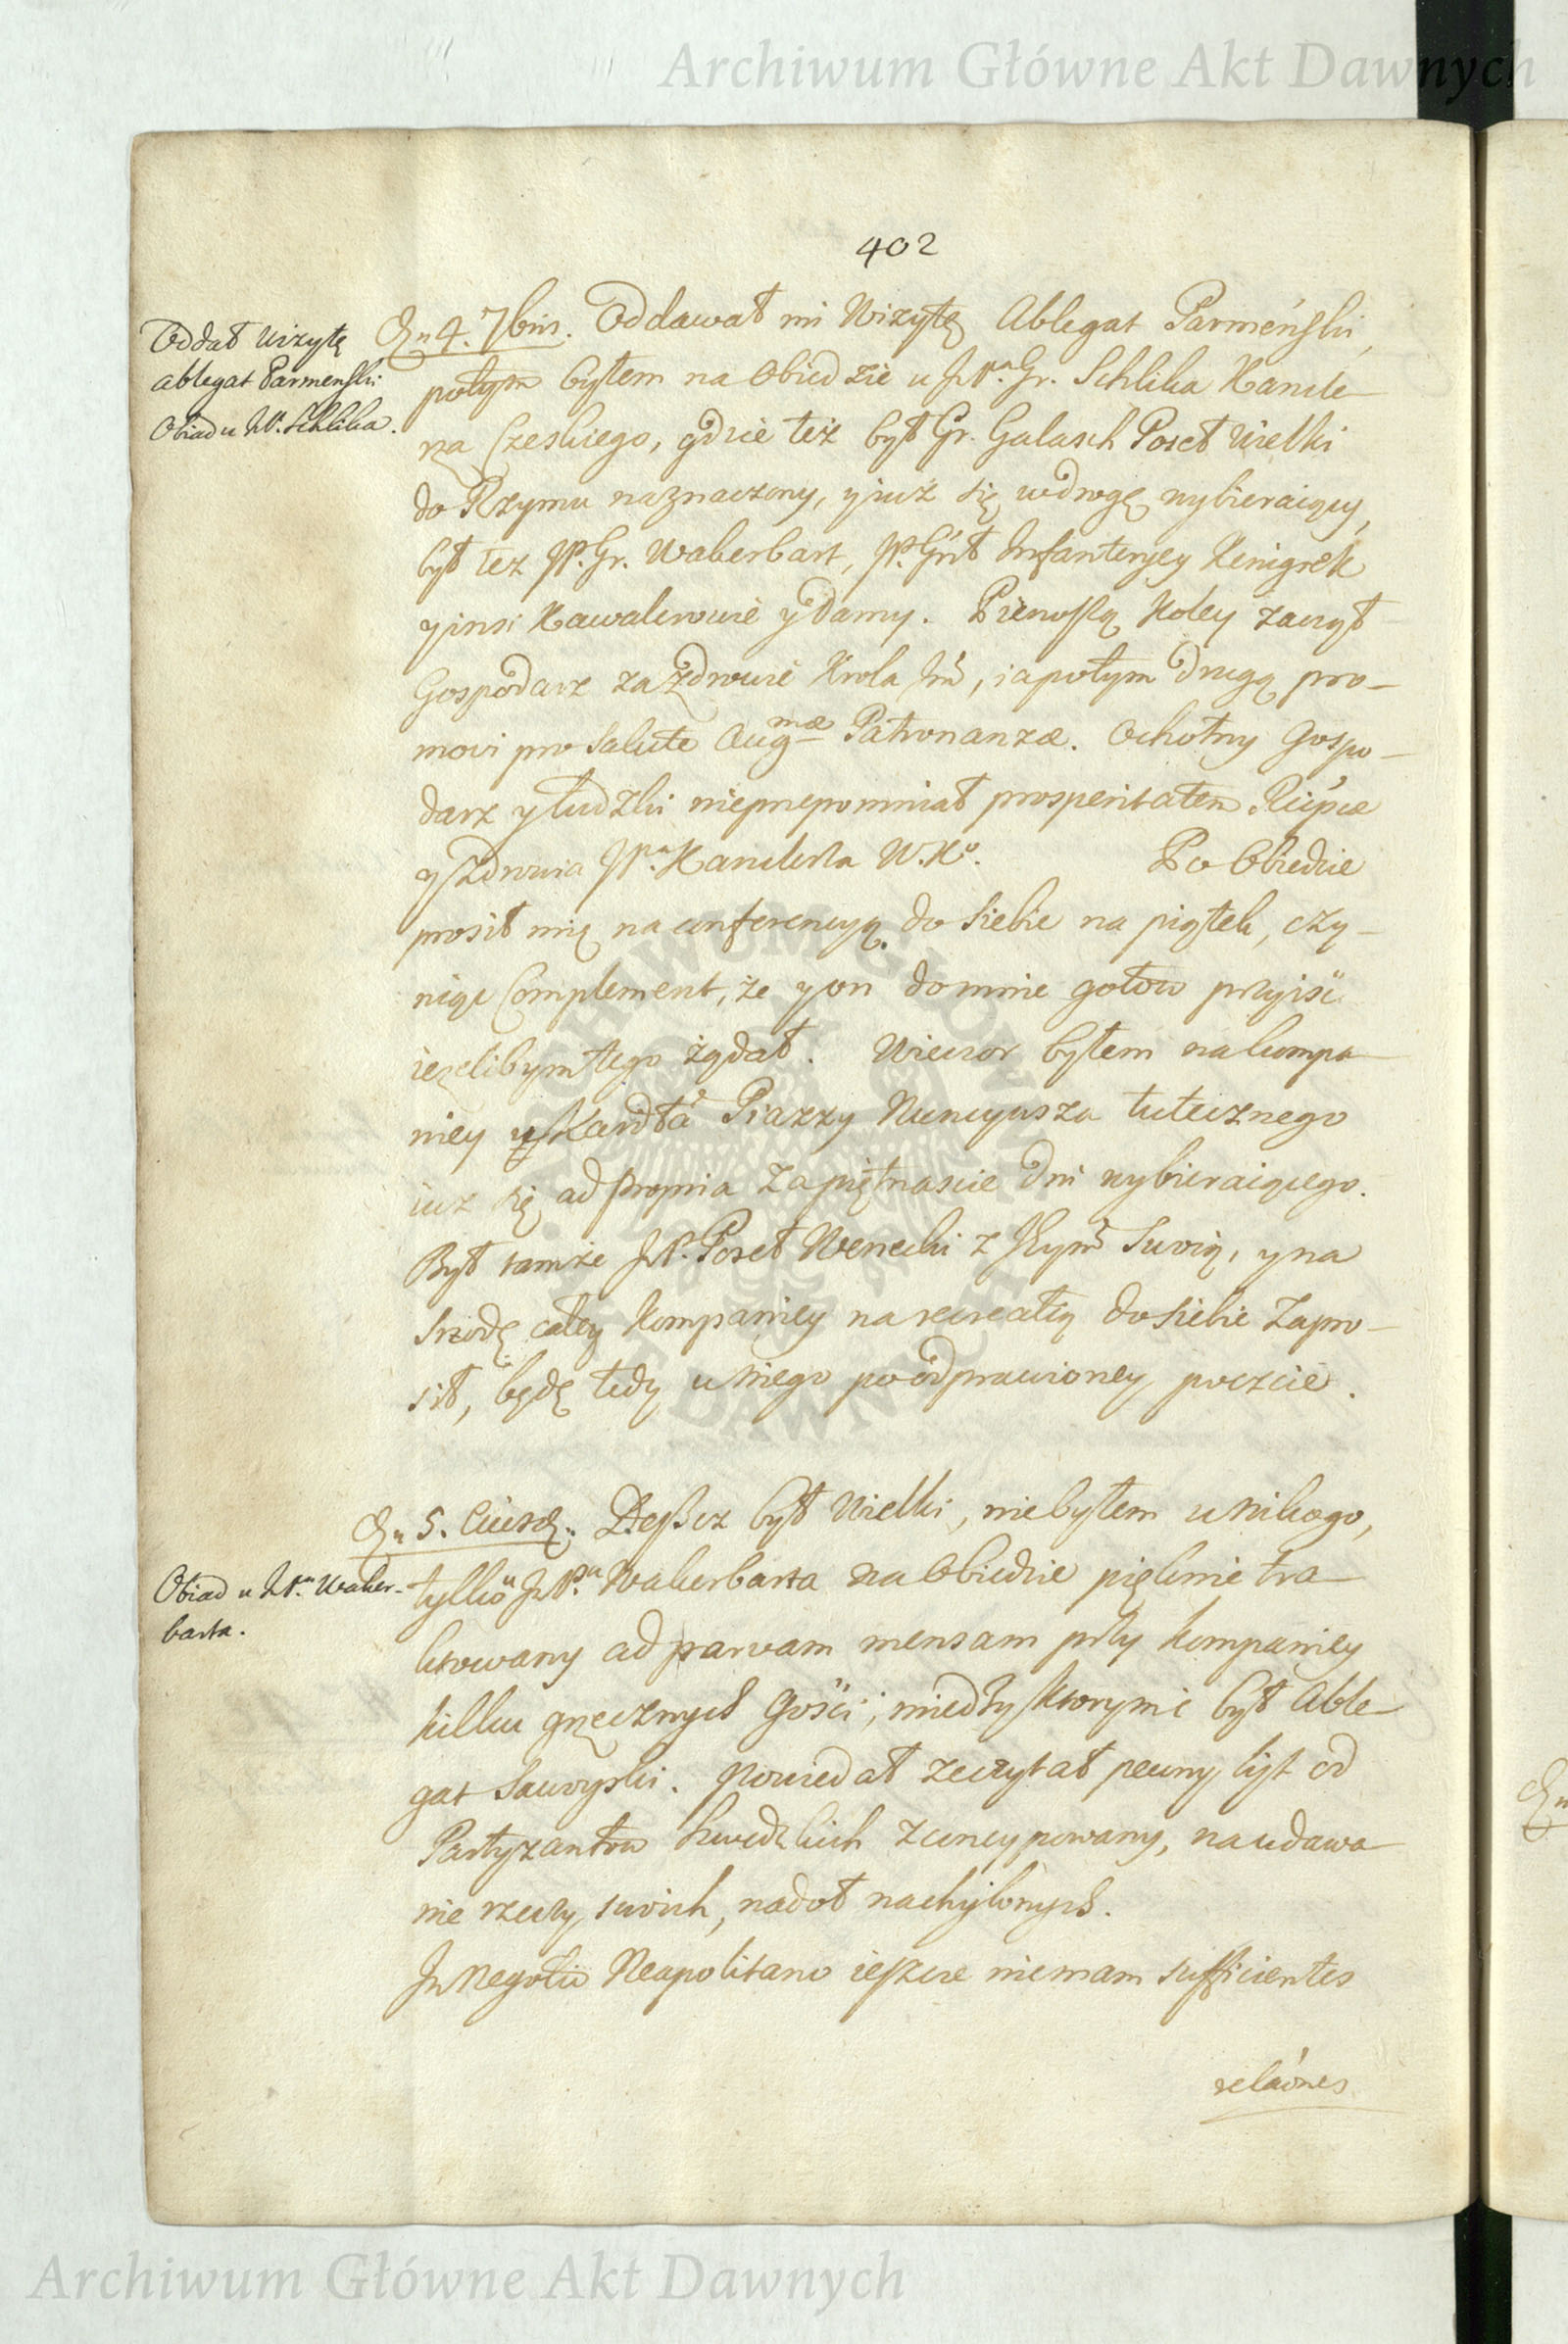 Archiwum Główne Akt Dawnych
402
Oddał wizytę
ablegat Parmenski
Obiad u JP. Schlika.
Dn 4. 7bris. Oddawał mi Wizytę Ablegat Parmeński,
potym byłem na Obiedzie u JP.a Gr. Schlika Kancle-
rza Czeskiego, gdzie też był Gr. Galasch Poseł Wielki
do Rzymu naznaczony, y iuż się wdrogę wybieraiący,
był też JP. Gr. Wakerbart, JP. Gńł Infanteryey Kenigsek
y insi Kawalerowie y Damy. Pierwszą Koley zaczął
Gospodarz za Zdrowie Krola Jm̃, ia potym drugą pro-
movi pro salute Augmæ Patronanzæ. Ochotny Gospo-
darz y ludzki nieprzepomniał prosperitatem Reipcæ
y Zdrowia JP.a Kanclerza W. Ko. Po Obiedzie
prosił mię na conferencyą do siebie na piątek, czy-
niąc Complement, że y on do mnie gotow przyiść
ieżelibym tego żądał. Wieczor byłem na kompa-
niey u Kardła Piazzy Nuncyusza tutecznego
iuż się ad propria za piętnascie dni wybieraiącego.
Był tamże JP. Poseł Wenecki z JEym̃ Swoią, y na
Srzodę całey Kompaniey na recreatią do siebie zapro-
sił, będę tedy u niego po odprawioney poczcie.
Obiad u JP.a Waker-
barta.
Dn 5. Eiusd. Deszcz był Wielki, niebyłem u nikogo,
tylko u JP.a Wakerbarta na Obiedzie pięknie tra-
ktowany ad parvam mensam przy kompaniey
kilku grzecznych Gości, między ktorymi był Able-
gat Sawoyski. Powiedał ze czytał pewny list od
Partyzantow Szwedzkich zconcypowany, na udawa-
nie rzeczy swoich, nadoł nachylonych.
In negotio Neapolitano ieszcze niemam sufficientes
relaones
Archiwum Główne Akt Dawnych